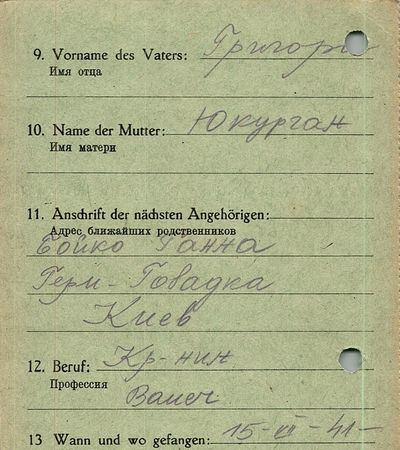 9. Vorname des Vaters: Григорі
Имя отца
10. Name der Mutter: Юкурган
Имя матери
11. Anschrift der nächsten Angehörigen:
Адрес ближайших родственников
Бойко Ганна
Киев
12. Beruf: Кр-нин
Профессия
Bauer
13 Wann und wo gefangen: 15-VII-41-